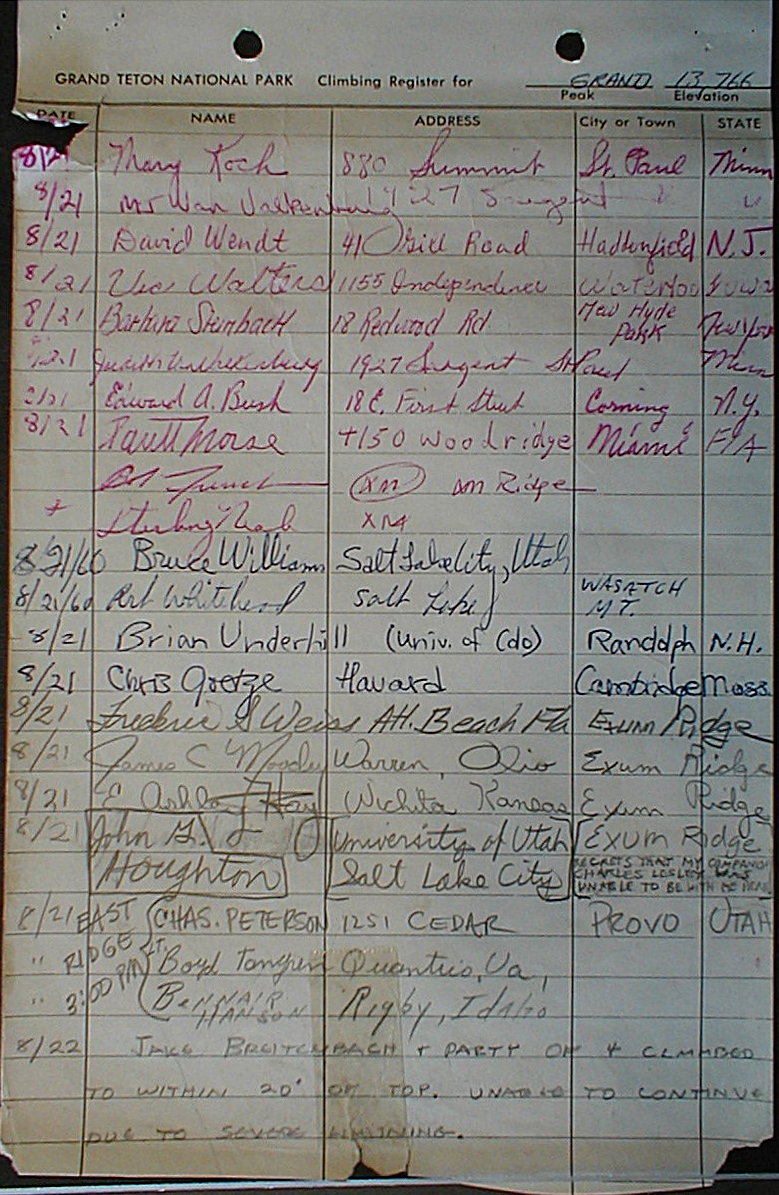 GRAND TETON NATIONAL PARK Climbing Register for GRAND 13,766
Peak Elevation
DATE NAME ADDRESS City or Town STATE
8/21 Mary Koch 880 Summit St. Paul Minn
8/21 Mr Van Valkenburg 1927 Sargent " "
8/21 David Wendt 41 Gill Road Haddonfield N.J.
8/21 Vic Walters 1155 Independence Waterloo Iowa
8/21 Barbara Steinbach 18 Redwood Rd. New Hyde Park New York
8/21 Judith 1927 Sargent St Paul Minn
8/21 Edward A. Bush 18 E. First Street Corning N.Y.
8/21 Morse 4150 Woodridge Miami FlA
French Ridge
Sterling Neale
8/21/60 Bruce Williams Salt Lake City, Utah
8/21/60 Art Whitehead Salt Lake WASATCH MT.
8/21 Brian Underhill (Univ. of Colo) Randolph N.H.
8/21 Chris Goetze Havard Cambridge Mass
8/21 Frederic S Weiss Atl. Beach Fla Exum Ridge
8/21 James C Moodey Warren, Ohio Exum Ridge
8/21 E Wichita Kansas Exum Ridge
8/21 John G. University of Utah Exum Ridge
Houghton Salt Lake City REGRETS THAT MY COMPANION CHARLES LESLEY WAS UNABLE TO BE WITH ME HERE
8/21 EAST CHAS. PETERSON 1251 CEDAR PROVO UTAH
" RIDGE LT. Boyd Quantico, Va,
" 3:00 PM BENNAIR HANSON Rigby, Idaho
8/22 JAKE BREITENBACH + PARTY OF 4 CLIMBED
TO WITHIN 20' OF TOP. UNABLE TO CONTINUE
DUE TO SEVERE LIGHTNING.